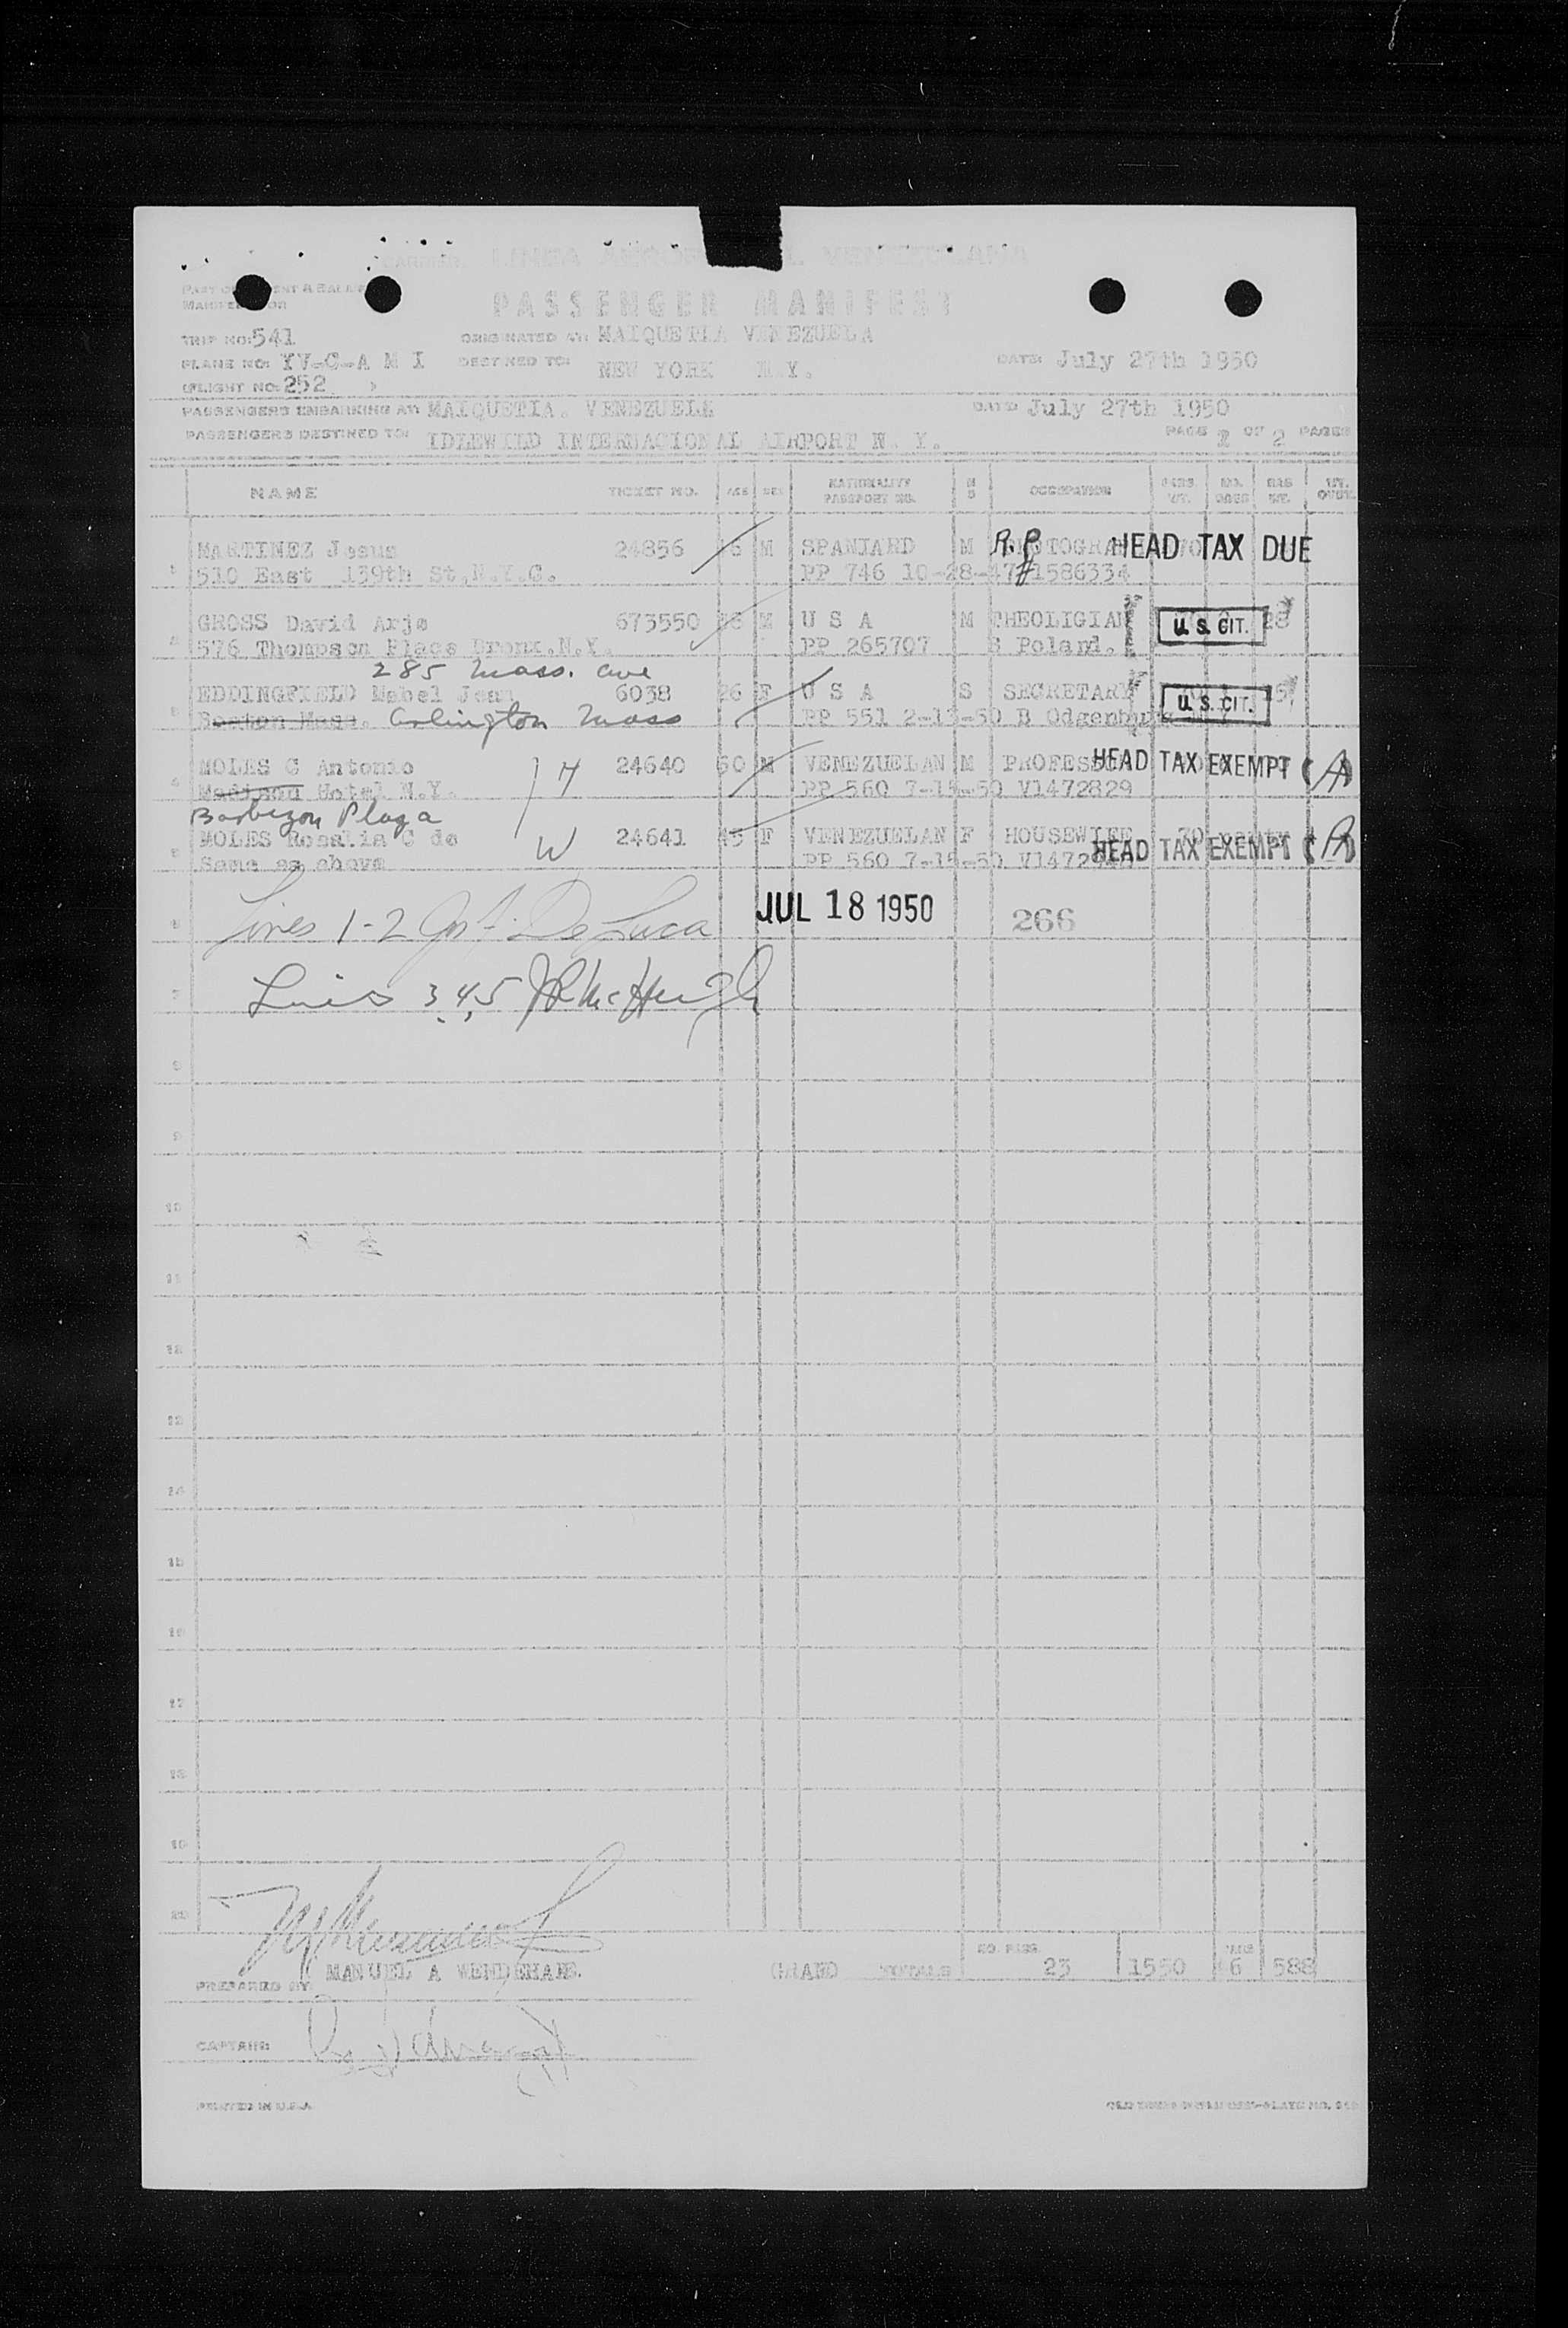 CARRIER LINEA AEROPOSTAL VENEZOLANA
PASSENGER MANIFEST
TRIP NO: 541 ORIGINATED AT: MAIQUETIA VENEZUELA
PLANE NO: YV-C-A M I DESTINED TO: NEW YORK N.Y. DATE: July 27th 1950
(FLIGHT NO: 252 )
PASSENGERS EMBARKING AT: MAIQUETIA. VENEZUELA DATE: July 27th 1950
PASSENGERS DESTINED TO: IDLEWILD INTERNACIONAL AIRPORT N. Y. PAGE 2 OF 2 PAGES
NAME TICKET NO. AGE SEX NATIONALITY PASSPORT NO. M S OCCUPATION PASS WT. NO. BAGS BAG WT.
1 MARTINEZ Jesus 24856 M SPANIARD M R.P. HEAD TAX DUE
510 East 139th St.N.Y.C. PP 746 10-28-47 #1586334
2 GROSS David Arje 673550 M U S A M THEOLIGIAN U.S. CIT. 28
576 Thompson Place Bronx.N.Y. PP 265707 S Poland.
285 Mass. ave
3 EDDINGFIELD Mabel Jean 6038 26 F U S A S SECRETARY U.S. CIT. 15
Boston Mass. Arlington Mass PP 551 2-13-50 B
4 MOLES C Antonio H 24640 60 M VENEZUELAN M PROFESSOR HEAD TAX EXEMPT (A)
Madison Hotel N.Y. PP 560 7-15-50 V1472829
Barbizon Plaza
5 MOLES Rosalia C de W 24641 45 F VENEZUELAN F HOUSEWIFE HEAD TAX EXEMPT (A)
Same as above PP 560 7-15-50
6 Lines 1-2 De Luca JUL 18 1950 266
7 Lines 3,4,5 McHugh
8
9
10
11
12
13
14
15
16
17
18
19
20
NO. PASS.
PREPARED BY MANUEL A GRAND TOTALS 23 1550 6 588
CAPTAIN:
PRINTED IN U.S.A.